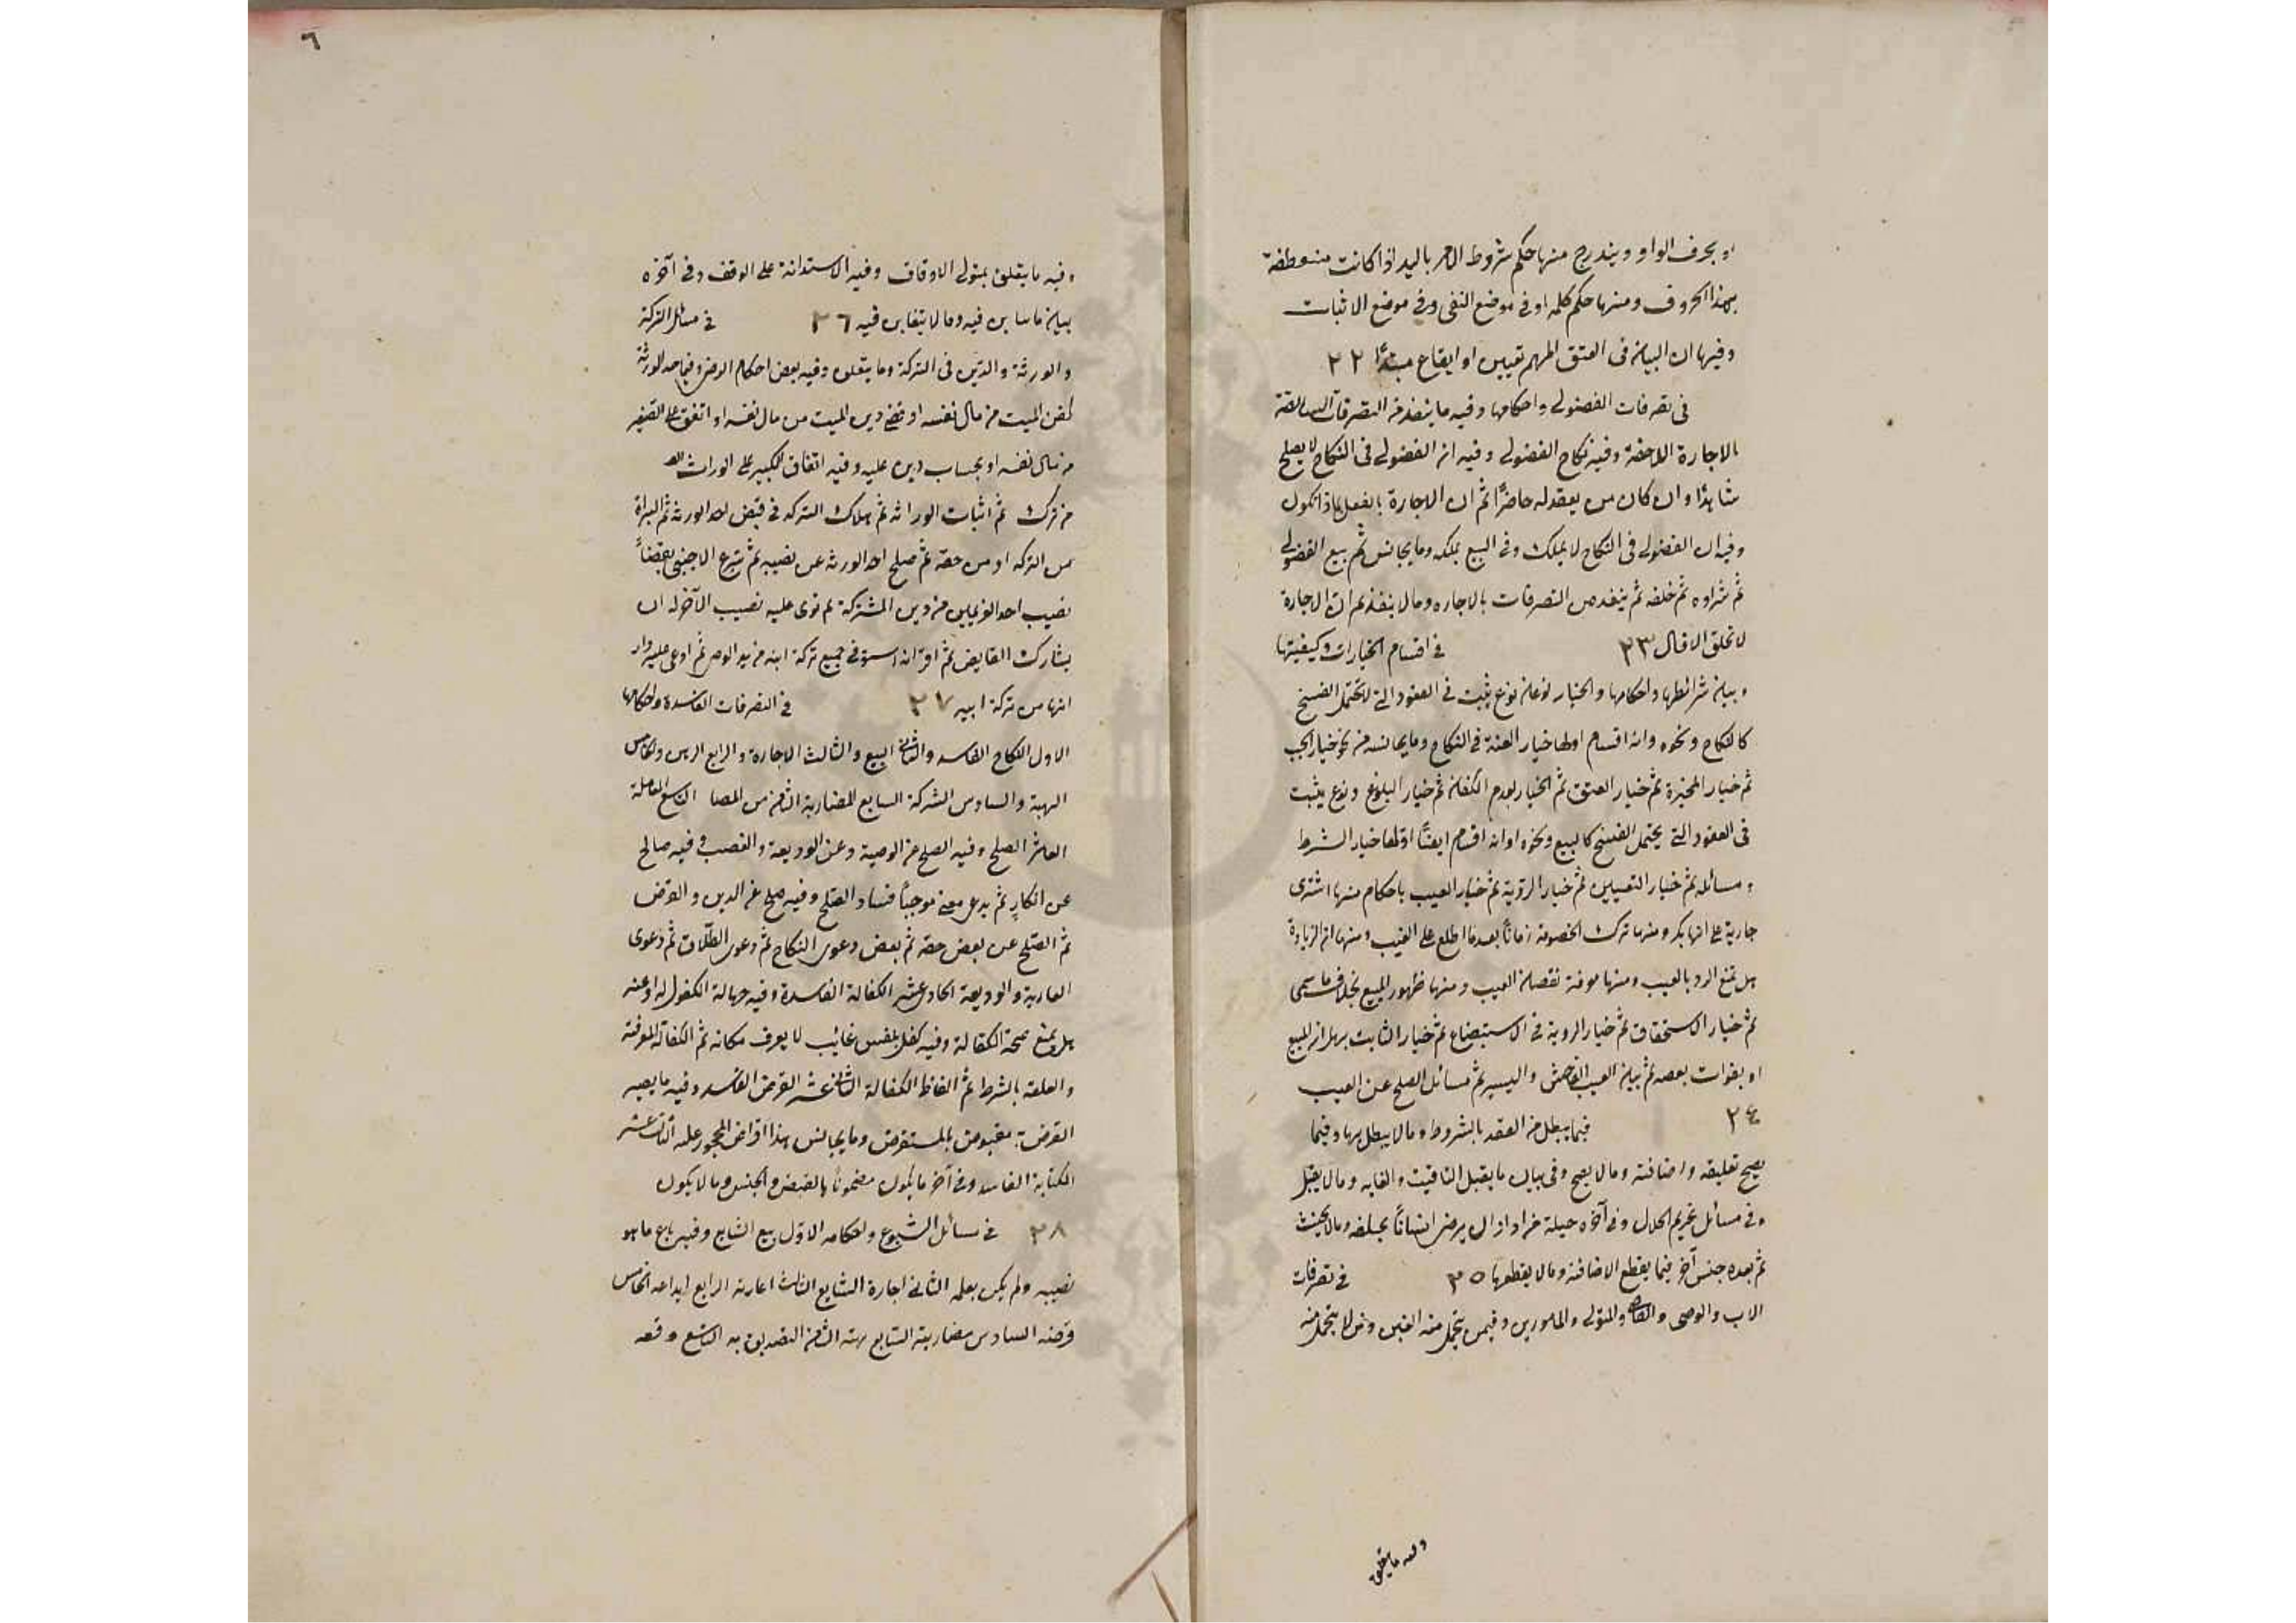 او بحرف الواو ويندرج منها حكم شروط الامر باليد اذا كانت منعطفة
بهذا الحروف ومنها حكم كلمه او فى موضع النفى وفى موضع الاثبات
وفيها ان البيان فى العتق المبهم تعيين او ايقاع مبتدًا ٢٢
فى تصرفات الفضولى واحكامها وفيه ما ينفذ من التصرفات السابقة
بالاجارة اللاحقة وفيه نكاح الفضولى وفيه ان الفضولى فى النكاح لا يصلح
شاهدًا وان كان من يعقد له حاضرًا ثم ان الاجارة بالفعل ماذا تكون
وفيه ان الفضولى فى النكاح لا يملك وفى البيع يملكه وما يجانس ثم بيع الفضولى
ثم شراوه ثم خلفه ثم ينفد من التصرفات بالاجاره وما لا ينفذ ثم ان الاجارة
لا تحلق الاقال ٢٣ فى اقسام الخيارات وكيفيتها
وبيان شرائطها واحكامها والخيار نوعان نوع يثبت فى العقود التى لا تحتمل الفسخ
كالنكاح ونحوه وانه اقسام اولها خيار العنة فى النكاح وما يجانسه من نحو خيار الجب
ثم خيار المخيرة ثم خيار العتق ثم الخيار لعدم الكفاة ثم خيار البلوغ ونوع يثبت
فى العقود التى يحتمل الفسخ كالبيع ونحوه اوانه اقسام ايضًا اولها خيار الشرط
ومسائله ثم خيار التعيين ثم خيار الرؤية ثم خيار العيب باحكام منها اشترى
جارية على انها بكر ومنها ترك الخصومة زمانًا بعد ما اطلع على العيب ومنها ان الزيادة
هل تمنع الرد بالعيب ومنها موفة نقصان العيب ومنها ظهور المبيع بخلاف ما سمى
ثم خيار الاستحقاق ثم خيار الروية فى الاستبضاع ثم خيار الثابت بهلاك المبيع
او بفوات بعضه ثم بيان العيب الفاحش واليسير ثم مسائل الصلح عن العيب
٢٤ فيما يبطل من العقد بالشروط وما لا يبطل بها وفيما
يصح تعليقه واضافته وما لا يصح وفى بيان ما يقبل التاقيت والغايه وما لا يقبل
وفى مسائل تحريم الحلال وفى آخره حيلة من اراد ان يرضى انسانًا بحلفه وما لا يحنث
ثم بعده جنس آخر فيما يقطع الاضافة وما لا يقطعها ٢٥ فى تصرفات
الاب والوصى والقاضى والمتولى والمامورين وفيمن يتحمل منه الغبن ومن لا يتحمل منه
وفيه ما يتعلق
٦
وفيه ما يتعلق بمتولى الاوقاف وفيه الاستدانة على الوقف وفى آخره
بيان ما يتغابن فيه وما لا يتغابن فيه ٢٦ فى مسائل التركة
والورثة والدين فى التركة وما يتعلق وفيه بعض احكام الوصى وفيما احد الورثة
كفن الميت من مال نفسه او قضى دين الميت من مال نفسه او انفق على الصغير
من مال نفسه او بحساب دين عليه وفيه انفاق الكبير على الوارث
من ترك ثم اثبات الوراثه ثم هلاك التركه فى قبض احد الورثه ثم البراة
من التركه او من حصة ثم صلح احد الورثه عن نصيبه ثم تبرع الاجنبى بقضاً
نصيب احد الغريمين من دين المشتركة ثم توى عليه نصيب الآخر له ان
يشارك القابض ثم اقر انه استوفى جميع تركة ابنه من يد الوصى ثم ادعى عليه دار
انها من تركة ابيه ٢٧ فى التصرفات الفاسدة واحكامها
الاول النكاح الفاسد والثانى البيع والثالث الاجارة والرابع الرهن والخامس
الهبة والسادس الشركة السابع المضاربة الثامن المعاملة التاسع المعاملة
العاشر الصلح وفيه الصلح من الوصية وعن الوديعة والغصب وفيه صالح
عن انكار ثم يدعى معنى موجبًا فساد الصلح وفيه صلح عن الدين والقرض
ثم الصلح عن بعض حقه ثم بعض دعوى النكاح ثم دعوى الطلاق ثم دعوى
العارية والوديعة الحادى عشر الكفالة الفاسدة وفيه جهالة المكفول له او عنه
هل يمنع صحة الكفالة وفيه كفل بنفس غائب لا يعرف مكانه ثم الكفالة الموقتة
والمعلقه بالشرط ثم الفاظ الكفالة الثانى عشر القرض الفاسد وفيه ما يصير
القرض مقبوض بالمستقرض وما يجانس هذا اقراض المحجور عليه الثالث عشر
الكتابة الفاسد وفى آخر ما يكون مضمونًا بالقبض والجنس وما لا يكون
٢٨ فى مسائل الشيوع واحكامه الاول بيع الشايع وفيه باع ما هو
نصيبه ولم يكن يعلمه الثانى اجارة الشايع الثالث اعارته الرابع ايداعه الخامس
قرضه السادس مضاربة السابع هبته الثامن التصديق به التاسع وقفه